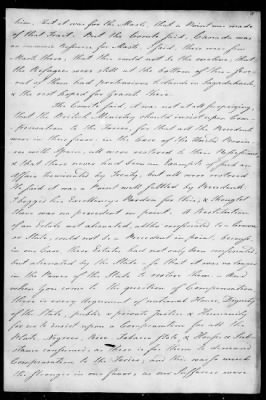 him, that it was for the Masts, that a Point was made
of that Tract. But the Comte said, Canada was
an immense Resource for Masts. I said, there were few
Masts there, that this could not be the motive, that
the Refugees were still at the bottom of this, for
of them had pretensions to Lands in Sagadahock
& the rest hoped for Grants there.
The Comte said, it was not at all surprizing,
that the British Ministry should insist upon Com-
pensation to the Tories, for that all the Precedents
were in their favor: in the Case of the United Provin-
ces with Spain, all were restored to their Possessions,
& that there never had been an Example of such an
Affair terminated by Treaty, but all were restored.
He said it was a Point well settled by Precedents.
I begged his Excellency's Pardon for this, & thought
there was no precedent in point. A Restitution
of an Estate not alienated, altho confiscated to a Crown
or State, could not be a Precedent in point, because
in our Case, these Estates had not only been confiscated,
but alienated by the State, so that it was no longer
in the Power of the State to restore them. And
when you come to the question of Compensation,
there is every Argument of national Honor, Dignity
of the State, public & private Justice & Humanity
for us to insist upon a Compensation for all the
Plate, Negroes, Rice, Tobacco stole, & Houses & Sub-
stance consumed, as there is for them to demand
Compensation to the Tories; and this was so much
the stronger in our favor, as our Sufferers were